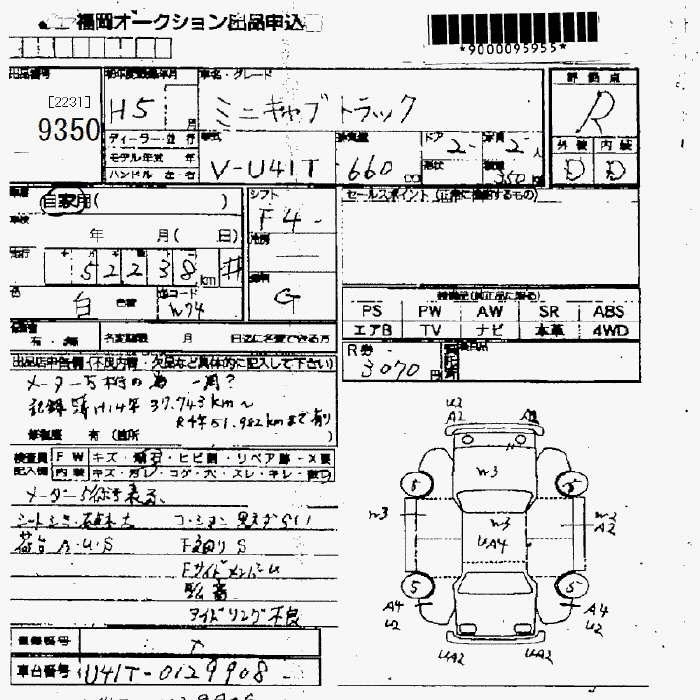 福岡オークション出品申込
*9000095955*
出品番号
[2231]
9350
初年度登録年月
H5 月
ディーラー 並行
モデル年式 年
ハンドル 左 右
車名・グレード
ミニキャブトラック
型式
V-U41T
排気量
660 cc
ドア 2
形状
定員 2 人
積載 350 kg
評価点
R
外装 内装
D D
車歴
自家用( )
車検
年 月( 日)
走行
52238 km #
色
白 色替
カラーコード
W94
シフト
F4
冷房
燃料
G
セールスポイント (正常に機能するもの)
装備品(純正品に限る)
PS PW AW SR ABS
エアB TV ナビ 本革 4WD
R券
3070 円
有・無
名変期限 月 日迄に名変できる方
出品店申告欄 (不良内容・欠品など具体的に記入して下さい)
メーター5桁の為 一周?
記録簿H14年 37.743km~
R4年51.982kmまで有り
修復歴 有 (箇所 )
検査員 FW キズ・飛石・ヒビ割・リペア跡・X要
記入欄 内装 キズ・ガレ・コゲ・穴・スレ・キレ・
メーター5桁表示
荷台 A・U・S
F廻りS
Fサイドメンバーu
アイドリング不良
登録番号
車台番号 U41T-0129908
U2
A2
W3
5
5
W3
W3
UA4
W2
A2
5
5
A4
U2
A4
U2
UA2
UA2